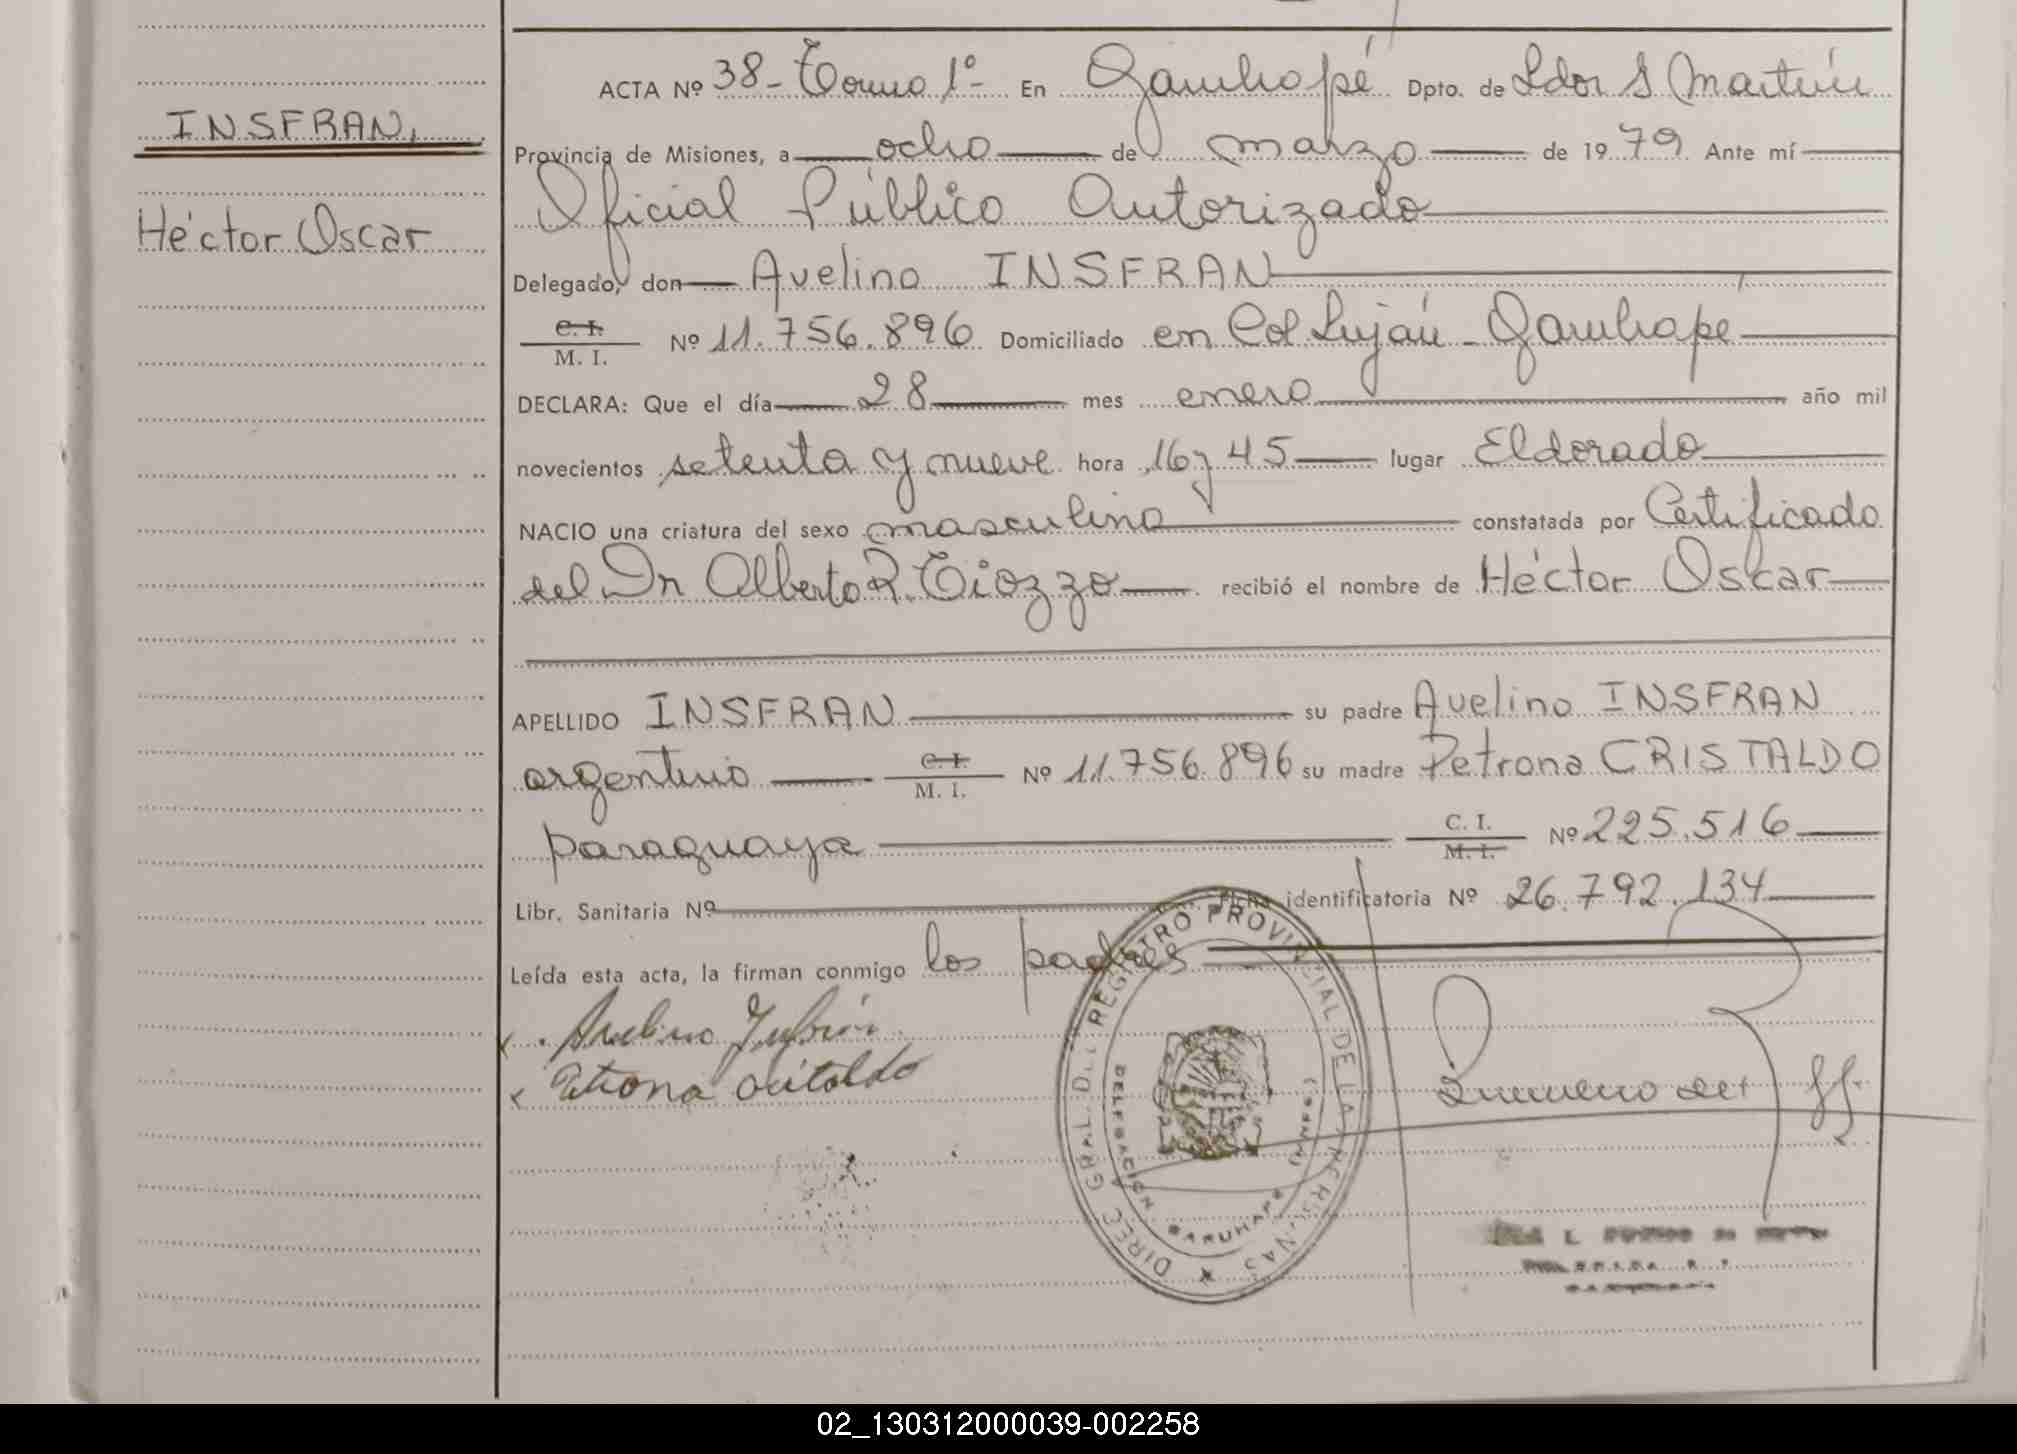 INSFRAN,
Héctor Oscar
ACTA Nº 38 - Tomo 1º - En Garuhapé Dpto. de Ldor S Martín
Provincia de Misiones, a ocho de marzo de 1979 Ante mí
Oficial Público Autorizado
Delegado, don Avelino INSFRAN
C. I.
M. I. Nº 11.756.896 Domiciliado en Col Luján - Garuhapé
DECLARA: Que el día 28 mes enero año mil
novecientos setenta y nueve hora 16 y 45 lugar Eldorado
NACIO una criatura del sexo masculino constatada por Certificado
del Dr Alberto R. Tiozzo recibió el nombre de Héctor Oscar
APELLIDO INSFRAN su padre Avelino INSFRAN
argentino C. I.
M. I. Nº 11.756.896 su madre Petrona CRISTALDO
paraguaya C. I.
M. I. Nº 225.516
Libr. Sanitaria Nº Ficha identificatoria Nº 26.792.134
Leída esta acta, la firman conmigo los padres
Avelino Insfrán
Petrona Cristaldo
DIREC. GRAL. DEL REGISTRO PROVINCIAL DE LAS PERSONAS
DELEGACION GARUHAPE (MNES.)
02_130312000039-002258